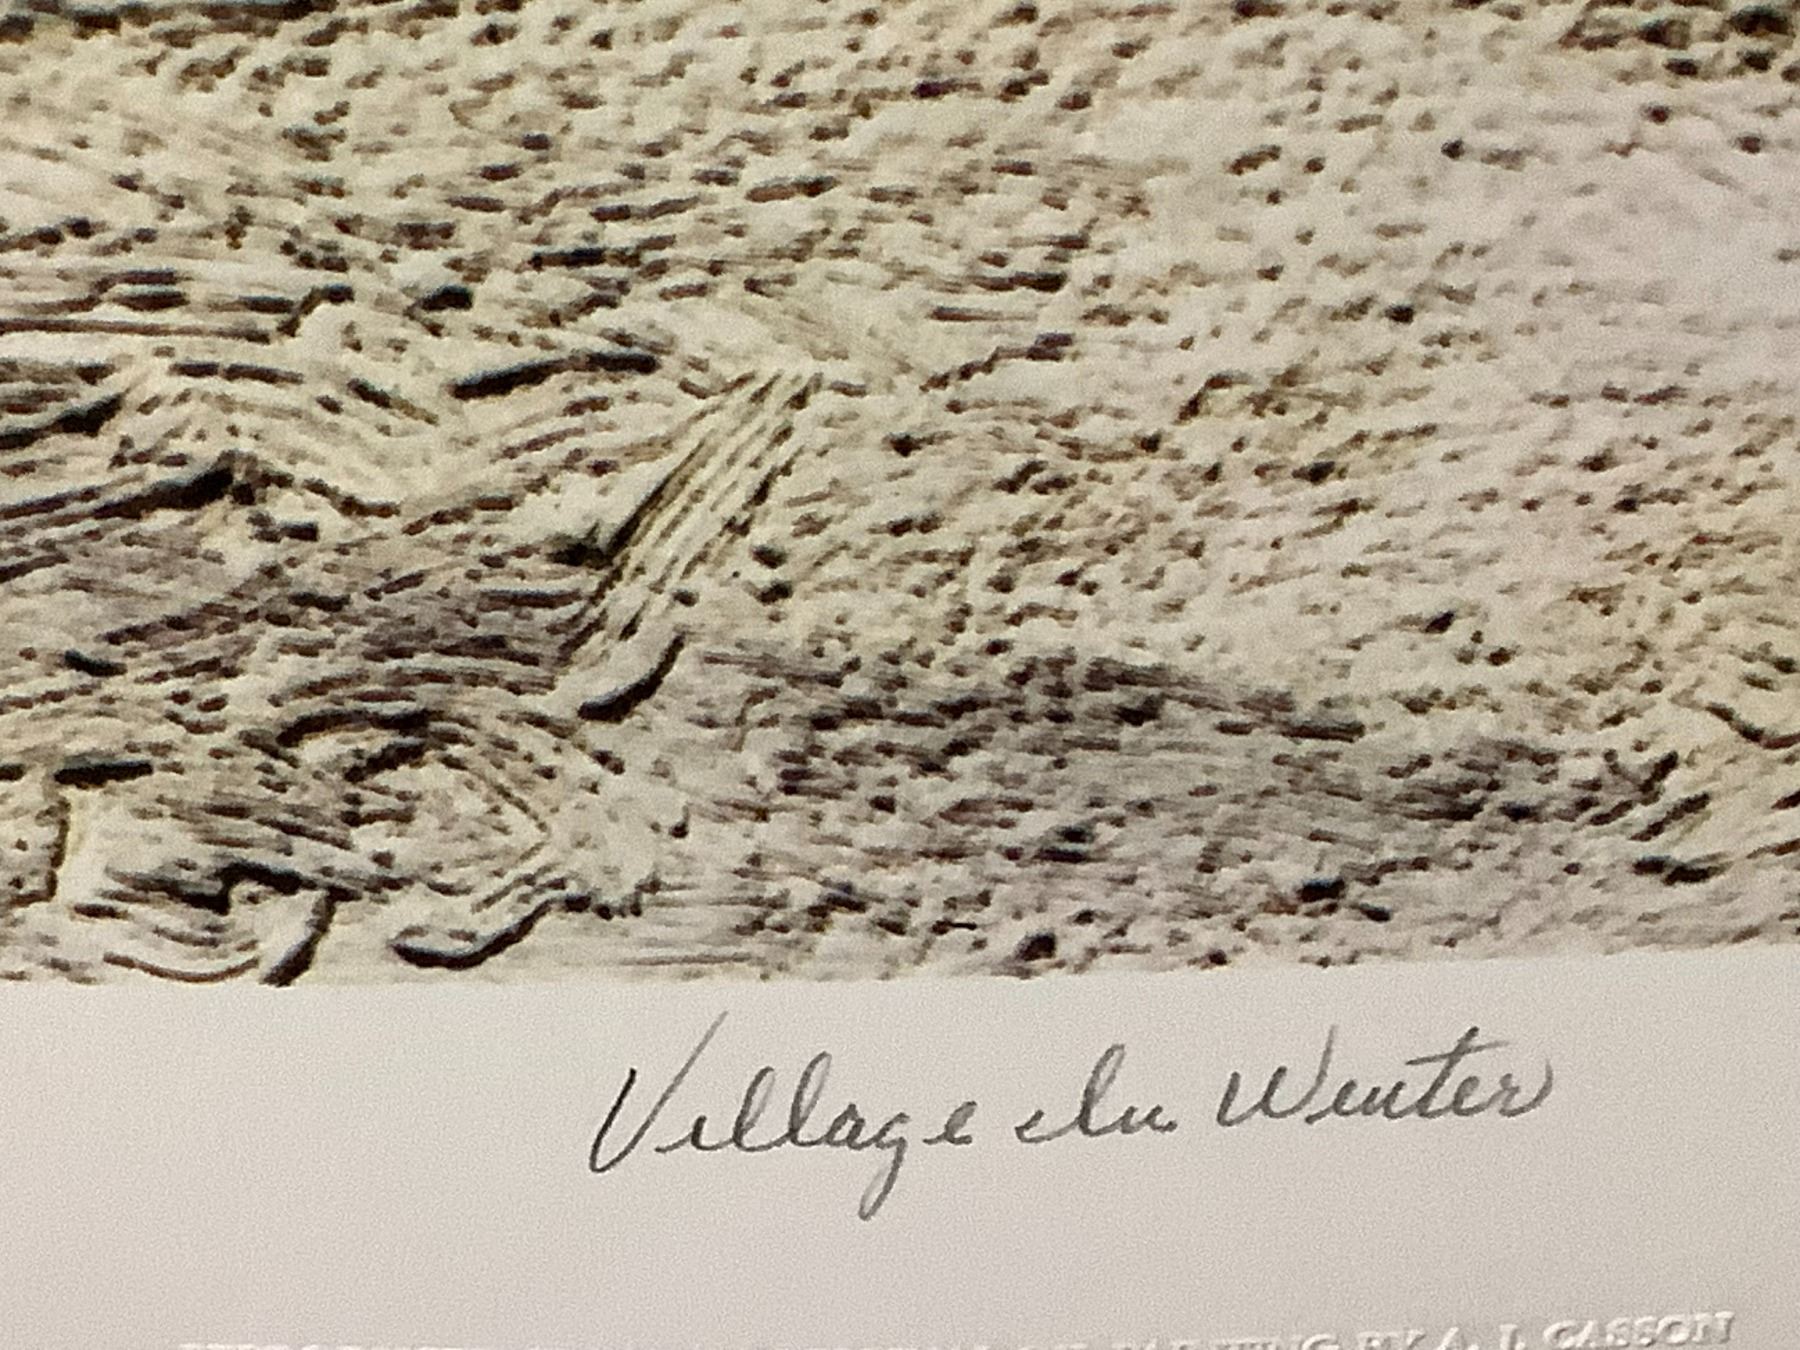 Village In Winter
PAINTING BY A. J. CASSON